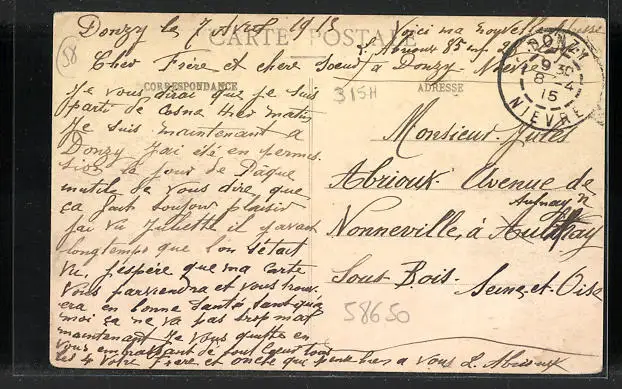 Donzy le 7 Avril 1915
CARTE POSTALE
Voici ma nouvelle adresse
L. Abrioux 85 inf 2
à Donzy Nièvre
Cher Frère et chere Soeur
CORRESPONDANCE
ADRESSE
58
315H
DONZY
9 30
8 - 4
15
NIEVRE
Je vous dirai que je suis
parti de Cosne Hier matin
Je suis maintenant a
Donzy J'ai été en permis
sion le jour de Paque
inutile de vous dire que
ça fait toujour plaisir
j'ai vu Juliette il y avait
longtemps que l'on s'était
vu, j'espère que ma carte
vous parviendra et vous trouv
era en bonne santé tant qu'a
moi ça ne va pas trop mal
maintenant Je vous quitte en
vous embrassant de tout Coeur tous
les 4 votre Frère et oncle qui pense bien a vous L. Abrioux
Monsieur Jules
Abrioux Avenue de
Aulnay
Nonneville, à Aulnay
Sous Bois. Seine et Oise
58650